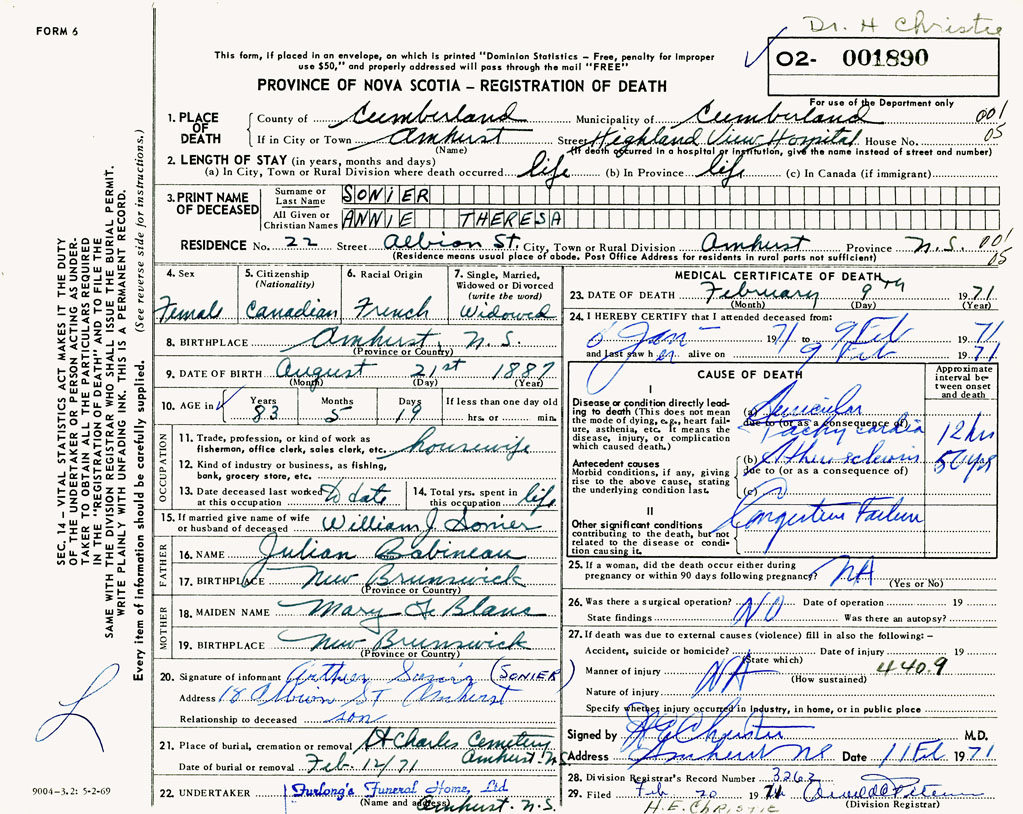 FORM 6
Dr. H Christie
This form, if placed in an envelope, on which is printed "Dominion Statistics – Free, penalty for improper
use $50," and properly addressed will pass through the mail "FREE"
02- 001890
PROVINCE OF NOVA SCOTIA – REGISTRATION OF DEATH
For use of the Department only
1. PLACE OF DEATH { County of Cumberland Municipality of Cumberland 001
If in City or Town Amhurst Street Highland View Hospital House No. 05
(Name) (If death occurred in a hospital or institution, give the name instead of street and number)
2. LENGTH OF STAY (in years, months and days)
(a) In City, Town or Rural Division where death occurred life (b) In Province life (c) In Canada (if immigrant)
3. PRINT NAME OF DECEASED { Surname or Last Name SONIER
All Given or Christian Names ANNIE THERESA
RESIDENCE No. 22 Street Albion St. City, Town or Rural Division Amhurst Province N.S. 001
(Residence means usual place of abode. Post Office Address for residents in rural parts not sufficient) 05
4. Sex Female
5. Citizenship (Nationality) Canadian
6. Racial Origin French
7. Single, Married, Widowed or Divorced (write the word) Widowed
8. BIRTHPLACE Amhurst, N.S.
(Province or Country)
9. DATE OF BIRTH August 21st 1887
(Month) (Day) (Year)
10. AGE in { Years 83 Months 5 Days 19 If less than one day old
hrs. or min.
OCCUPATION
11. Trade, profession, or kind of work as
fisherman, office clerk, sales clerk, etc. housewife
12. Kind of industry or business, as fishing,
bank, grocery store, etc.
13. Date deceased last worked at this occupation To date
14. Total yrs. spent in this occupation life
15. If married give name of wife
or husband of deceased William J Sonier
FATHER
16. NAME Julian Babineau
17. BIRTHPLACE New Brunswick
(Province or Country)
MOTHER
18. MAIDEN NAME Mary Le Blanc
19. BIRTHPLACE New Brunswick
(Province or Country)
20. Signature of informant Arthur (SONIER)
Address 18 Albion ST Amhurst
Relationship to deceased son
21. Place of burial, cremation or removal St Charles Cemetery
Amhurst. N.S
Date of burial or removal Feb. 12/71
22. UNDERTAKER Furlong's Funeral Home, Ltd
(Name and address) Amhurst. N.S.
MEDICAL CERTIFICATE OF DEATH
23. DATE OF DEATH February 9th 1971
(Month) (Day) (Year)
24. I HEREBY CERTIFY that I attended deceased from:
Jan 1971 to 9 Feb 1971
and last saw her alive on 9 Feb 1971
CAUSE OF DEATH
Approximate interval between onset and death
I
Disease or condition directly leading to death (This does not mean the mode of dying, e.g., heart failure, asthenia, etc. It means the disease, injury, or complication which caused death.)
(a) Auricular
due to (or as a consequence of)
Tachycardia 12 hrs
Antecedent causes
Morbid conditions, if any, giving rise to the above cause, stating the underlying condition last.
(b)
due to (or as a consequence of)
(c)
II
Other significant conditions
contributing to the death, but not related to the disease or condition causing it.
Congestive Failure
25. If a woman, did the death occur either during
pregnancy or within 90 days following pregnancy? NA
(Yes or No)
26. Was there a surgical operation? NO Date of operation 19
State findings Was there an autopsy?
27. If death was due to external causes (violence) fill in also the following: –
Accident, suicide or homicide? Date of injury 19
(State which)
Manner of injury NA 440.9
(How sustained)
Nature of injury
Specify whether injury occurred in industry, in home, or in public place
Signed by Christie M.D.
Address Amhurst NS Date 11 Feb 1971
28. Division Registrar's Record Number 3263
29. Filed Feb 20 1971
(Division Registrar)
H.E. CHRISTIE
SEC. 14 – VITAL STATISTICS ACT MAKES IT THE DUTY
OF THE UNDERTAKER OR PERSON ACTING AS UNDER-
TAKER TO OBTAIN ALL THE PARTICULARS REQUIRED
IN THE "REGISTRATION OF DEATH" AND TO FILE THE
SAME WITH THE DIVISION REGISTRAR WHO SHALL ISSUE THE BURIAL PERMIT.
WRITE PLAINLY WITH UNFADING INK. THIS IS A PERMANENT RECORD.
Every item of information should be carefully supplied. (See reverse side for instructions.)
9004–3.2: 5-2-69